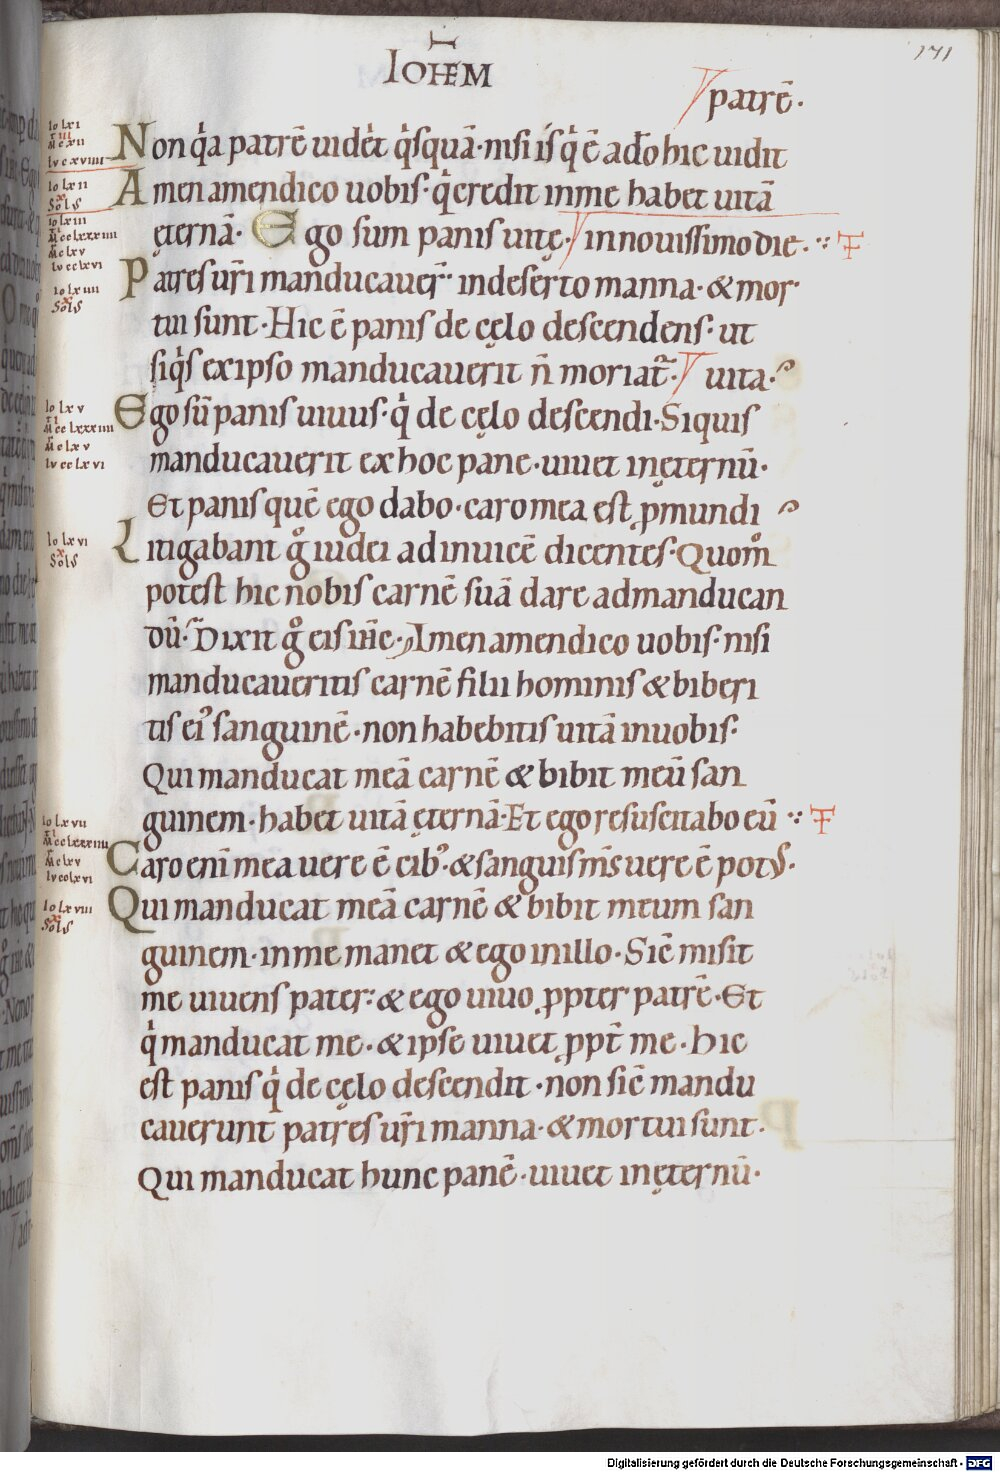 IOHEM
171
patrē.
Non qͥa patrē uidet qͥsquā· nisi is qͥ ē ad̄o hic uidit
Amen amen dico uobis· qͥ credit in me habet uitā
ęternā· Ego sum panis uitę· in nouissimo die.
Patres ur̄i manducauer̄· in deserto manna· & mor
tui sunt· Hic ē panis de cęlo descendens· ut
siqͥs ex ipso manducauerit n̄ moriat̄· uita·
Ego sū panis uiuus· qͥ de cęlo descendi· Siquis
manducauerit ex hoc pane· uiuet in ęternū·
Et panis quē ego dabo· caro mea est ꝓ mundi
Litigabant gͦ iudei ad inuicē dicentes· Quom̊
potest hic nobis carnē suā dare ad manducan
dū· Dixit gͦ eis ih̄c· Amen amen dico uobis· nisi
manducaueritis carnē filii hominis & biberi
tis ei᾿ sanguinē· non habebitis uitā in uobis·
Qui manducat meā carnē & bibit meū san
guinem· habet uitā ęternā· Et ego resuscitabo eū
Caro enī mea uere ē cib᾿· & sanguis m̄s uere ē pot᾿·
Qui manducat meā carnē & bibit meum san
guinem· in me manet & ego in illo· Sic̄ misit
me uiuens pater: & ego uiuo ꝓpter patrē· Et
qͥ manducat me· & ipse uiuet ꝓpt̄ me· Hic
est panis qͥ de cęlo descendit· non sic̄ mandu
cauerunt patres ur̄i manna· & mortui sunt·
Qui manducat hunc panē· uiuet in ęternū·
Io lxi
Io lxii
Io lxiii
Io lxiiii
Io lxv
Io lxvi
Io lxvii
Io lxviii
Digitalisierung gefördert durch die Deutsche Forschungsgemeinschaft - DFG